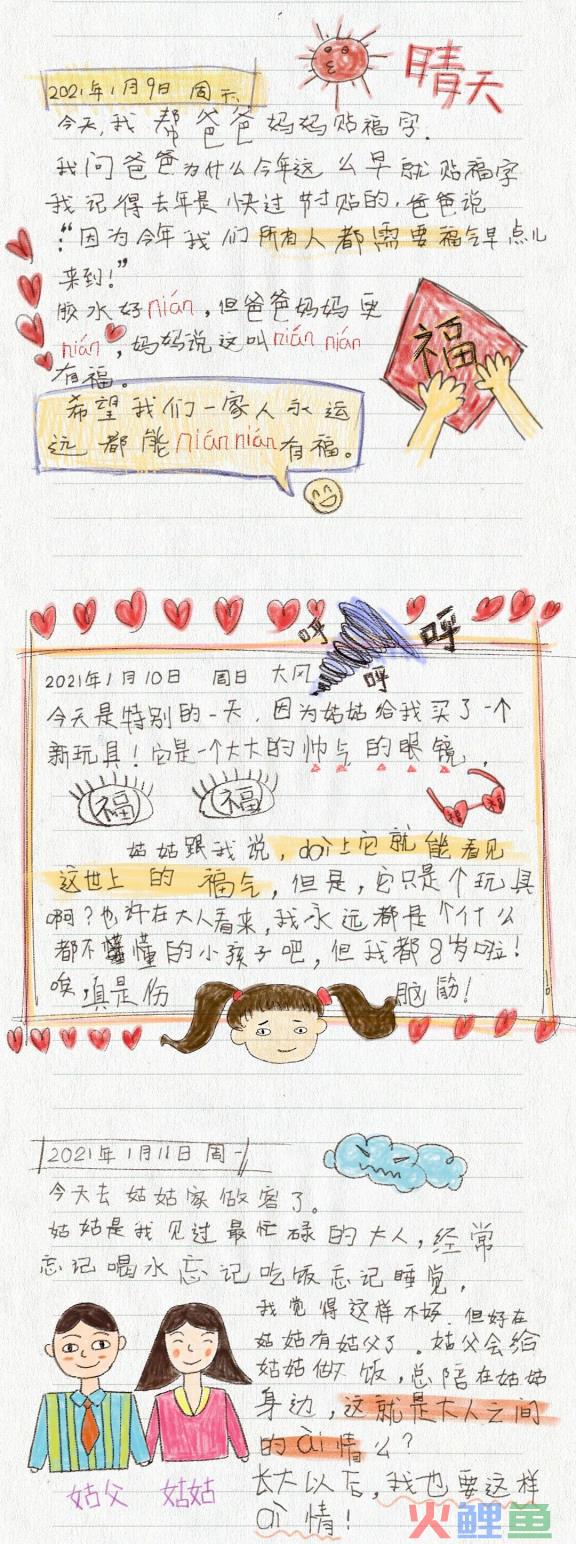 2021年1月9日 周六
晴天
今天,我帮爸爸妈妈贴福字.
我问爸爸为什么今年这么早就贴福字
我记得去年是快过节时贴的.爸爸说
:“因为今年我们所有人都需要福气早点儿
来到!”
胶水好nián,但爸爸妈妈更
nián,妈妈说这叫nián nián
有福。
福
希望我们一家人永远
远都能niánnián有福。
呼
呼
呼
2021年1月10日 周日 大风
今天是特别的一天.因为姑姑给我买了一个
新玩具!它是一个大大的帅气的眼镜.
福 福
福 福
姑姑跟我说,dài上它就能看见
这世上的福气,但是,它只是个玩具
啊?也许在大人看来,我永远都是个什么
都不懂的小孩子吧,但我都8岁啦!
唉,真是伤脑筋!
2021年1月11日 周一
今天去姑姑家做客了。
姑姑是我见过最忙碌的大人,经常
忘记喝水忘记吃饭忘记睡觉,
我觉得这样不好.但好在
姑姑有姑父了。姑父会给
姑姑做饭,总陪在姑姑
身边,这就是大人之间
的ài情么?
长大以后,我也要这样
ài情!
姑父 姑姑
火鲤鱼